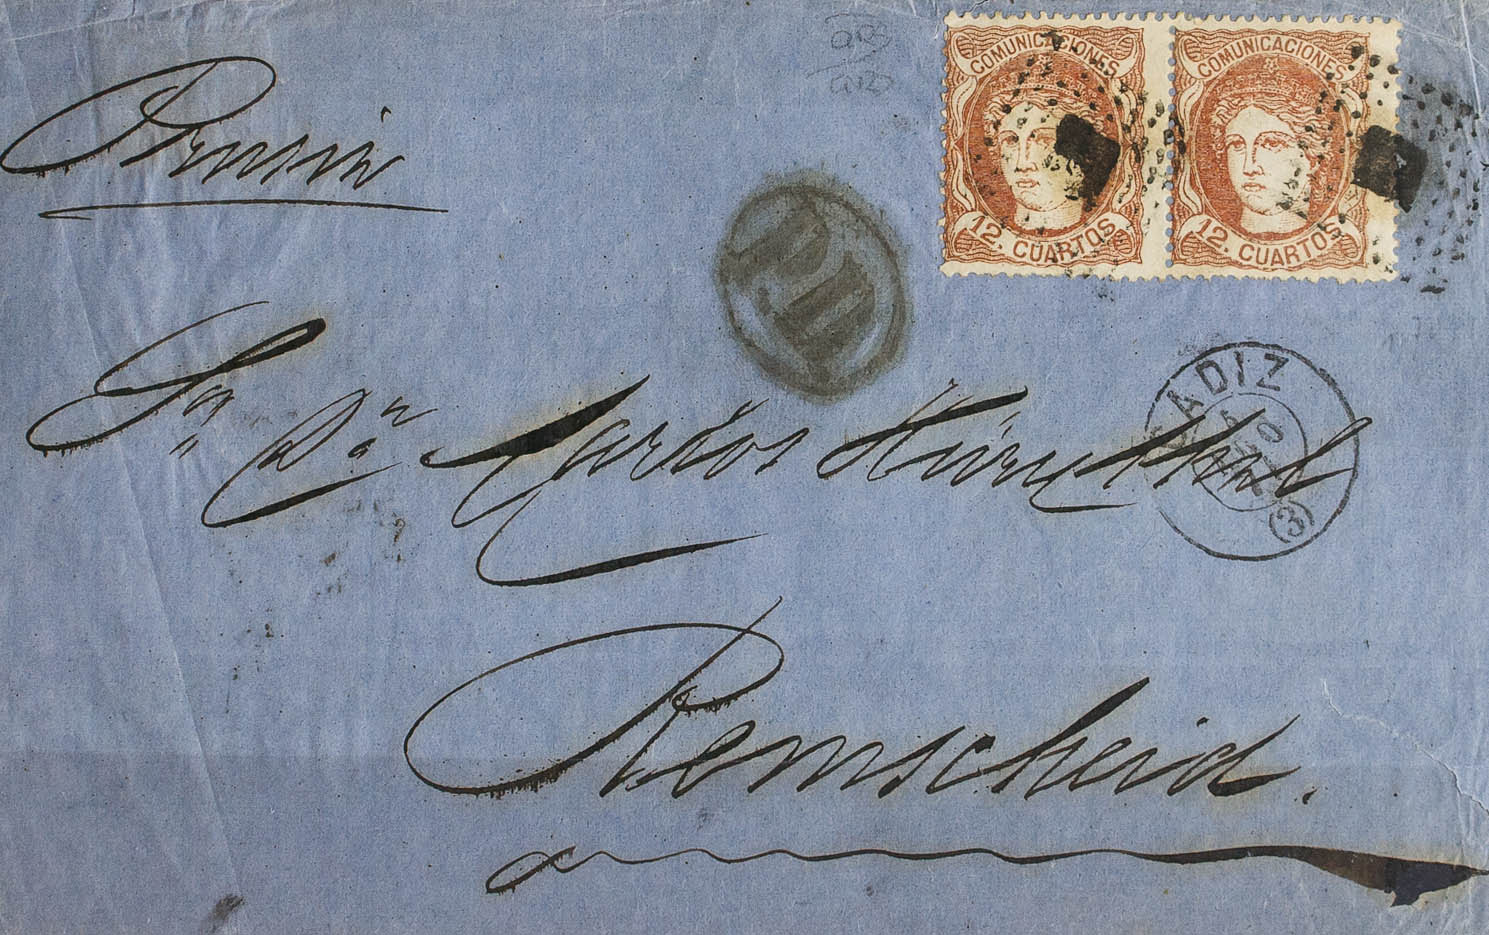 Prusia
COMUNICACIONES
12. CUARTOS
COMUNICACIONES
12. CUARTOS
PD
CADIZ
AGO
(3)
Sor. Dn. Carlos
Remscheid.